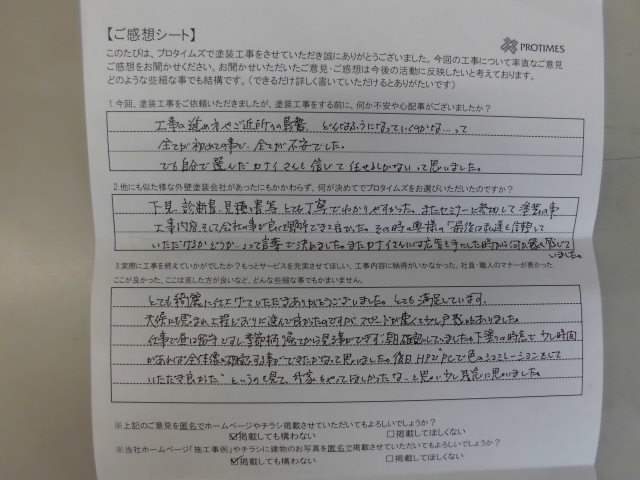 【ご感想シート】
PROTIMES
このたびは、プロタイムズで塗装工事をさせていただき誠にありがとうございました。今回の工事について率直なご意見
ご感想をお聞かせください。お聞かせいただいたご意見・ご感想は今後の活動に反映したいと考えております。
どのような些細な事でも結構です。（できるだけ詳しく書いていただけるとありがたいです）
1.今回、塗装工事をご依頼いただきましたが、塗装工事をする前に、何か不安や心配事がございましたか？
工事の進め方やご近所への影響、どんなふうになっていくのかな…って
全てが初めての事で、全てが不安でした。
でも自分で選んだカナイさんを信じて任せるしかないって思いました。
2.他にも似た様な外壁塗装会社があったにもかかわらず、何が決めてでプロタイムズをお選びいただいたのですか？
下見、診断書、見積り書等とても丁寧でわかりやすかった。またセミナーに参加して塗装の事
工事内容、そして会社の事が良く理解できて良かった。その時の奥様の「最後は私達を信頼して
いただけるかどうか」って言葉で決めました。またカナイさんには広告を手にした時から何か縁を感じて
いました。
3.実際に工事を終えていかがでしたか？もっとサービスを充実させてほしい、工事内容に納得がいかなかった、社員・職人のマナーが悪かった
ここが良かった、ここは直した方が良いなど、どんな些細な事でもかまいません。
とても綺麗に仕上げていただきありがとうございました。とても満足しています。
天候にも恵まれ、工程どおりに進んで良かったのですが、スピードが速くて少し戸惑いもありました。
仕事で昼は留守ですし、季節柄、帰ってから見る事ができず、朝確認していました。下塗りの時点で少し時間
があれば全体像を確認する事ができたかなって思いました。後日HPで"PCで色のシュミレーションをして
いただき良かった"というのを見て、我家もやってほしかったな…と思い少し残念に思いました。
※上記のご意見を匿名でホームページやチラシ掲載させていただいてもよろしいでしょうか？
☑掲載しても構わない　□掲載してほしくない
※当社ホームページ「施工事例」やチラシに建物のお写真を匿名で掲載させていただいてもよろしいでしょうか？
☑掲載しても構わない　□掲載してほしくない